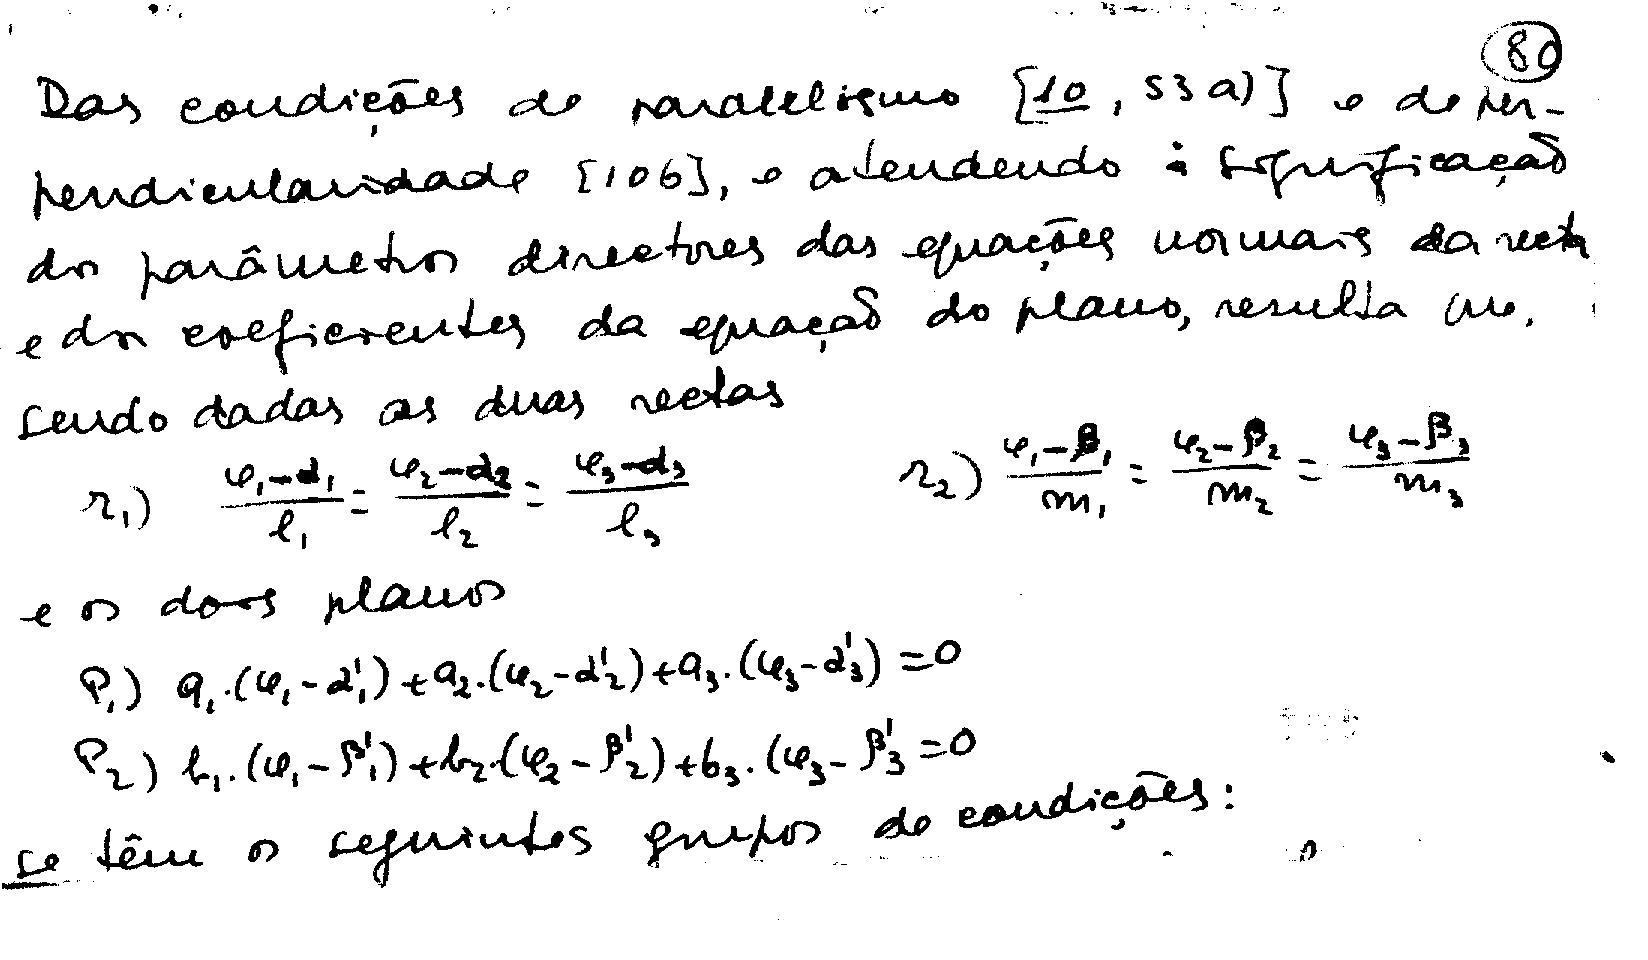 80
Das condições de paralelismo [10, 53 a)] e de per-
pendicularidade [106], e atendendo à significação
dos parâmetros directores das equações normais da recta
e dos coeficientes da equação do plano, resulta que,
sendo dadas as duas rectas
r₁) (φ₁-α₁)/l₁ = (φ₂-α₂)/l₂ = (φ₃-α₃)/l₃ r₂) (φ₁-β₁)/m₁ = (φ₂-β₂)/m₂ = (φ₃-β₃)/m₃
e os dois planos
P₁) a₁.(φ₁-α'₁)+a₂.(φ₂-α'₂)+a₃.(φ₃-α'₃)=0
P₂) b₁.(φ₁-β'₁)+b₂.(φ₂-β'₂)+b₃.(φ₃-β'₃=0
se têm os seguintes grupos de condições: